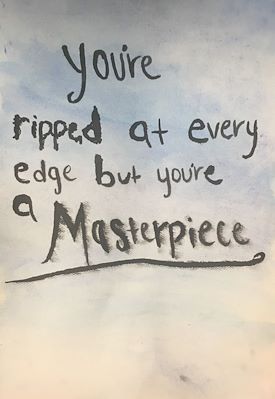 You're
ripped at every
edge but you're
a Masterpiece